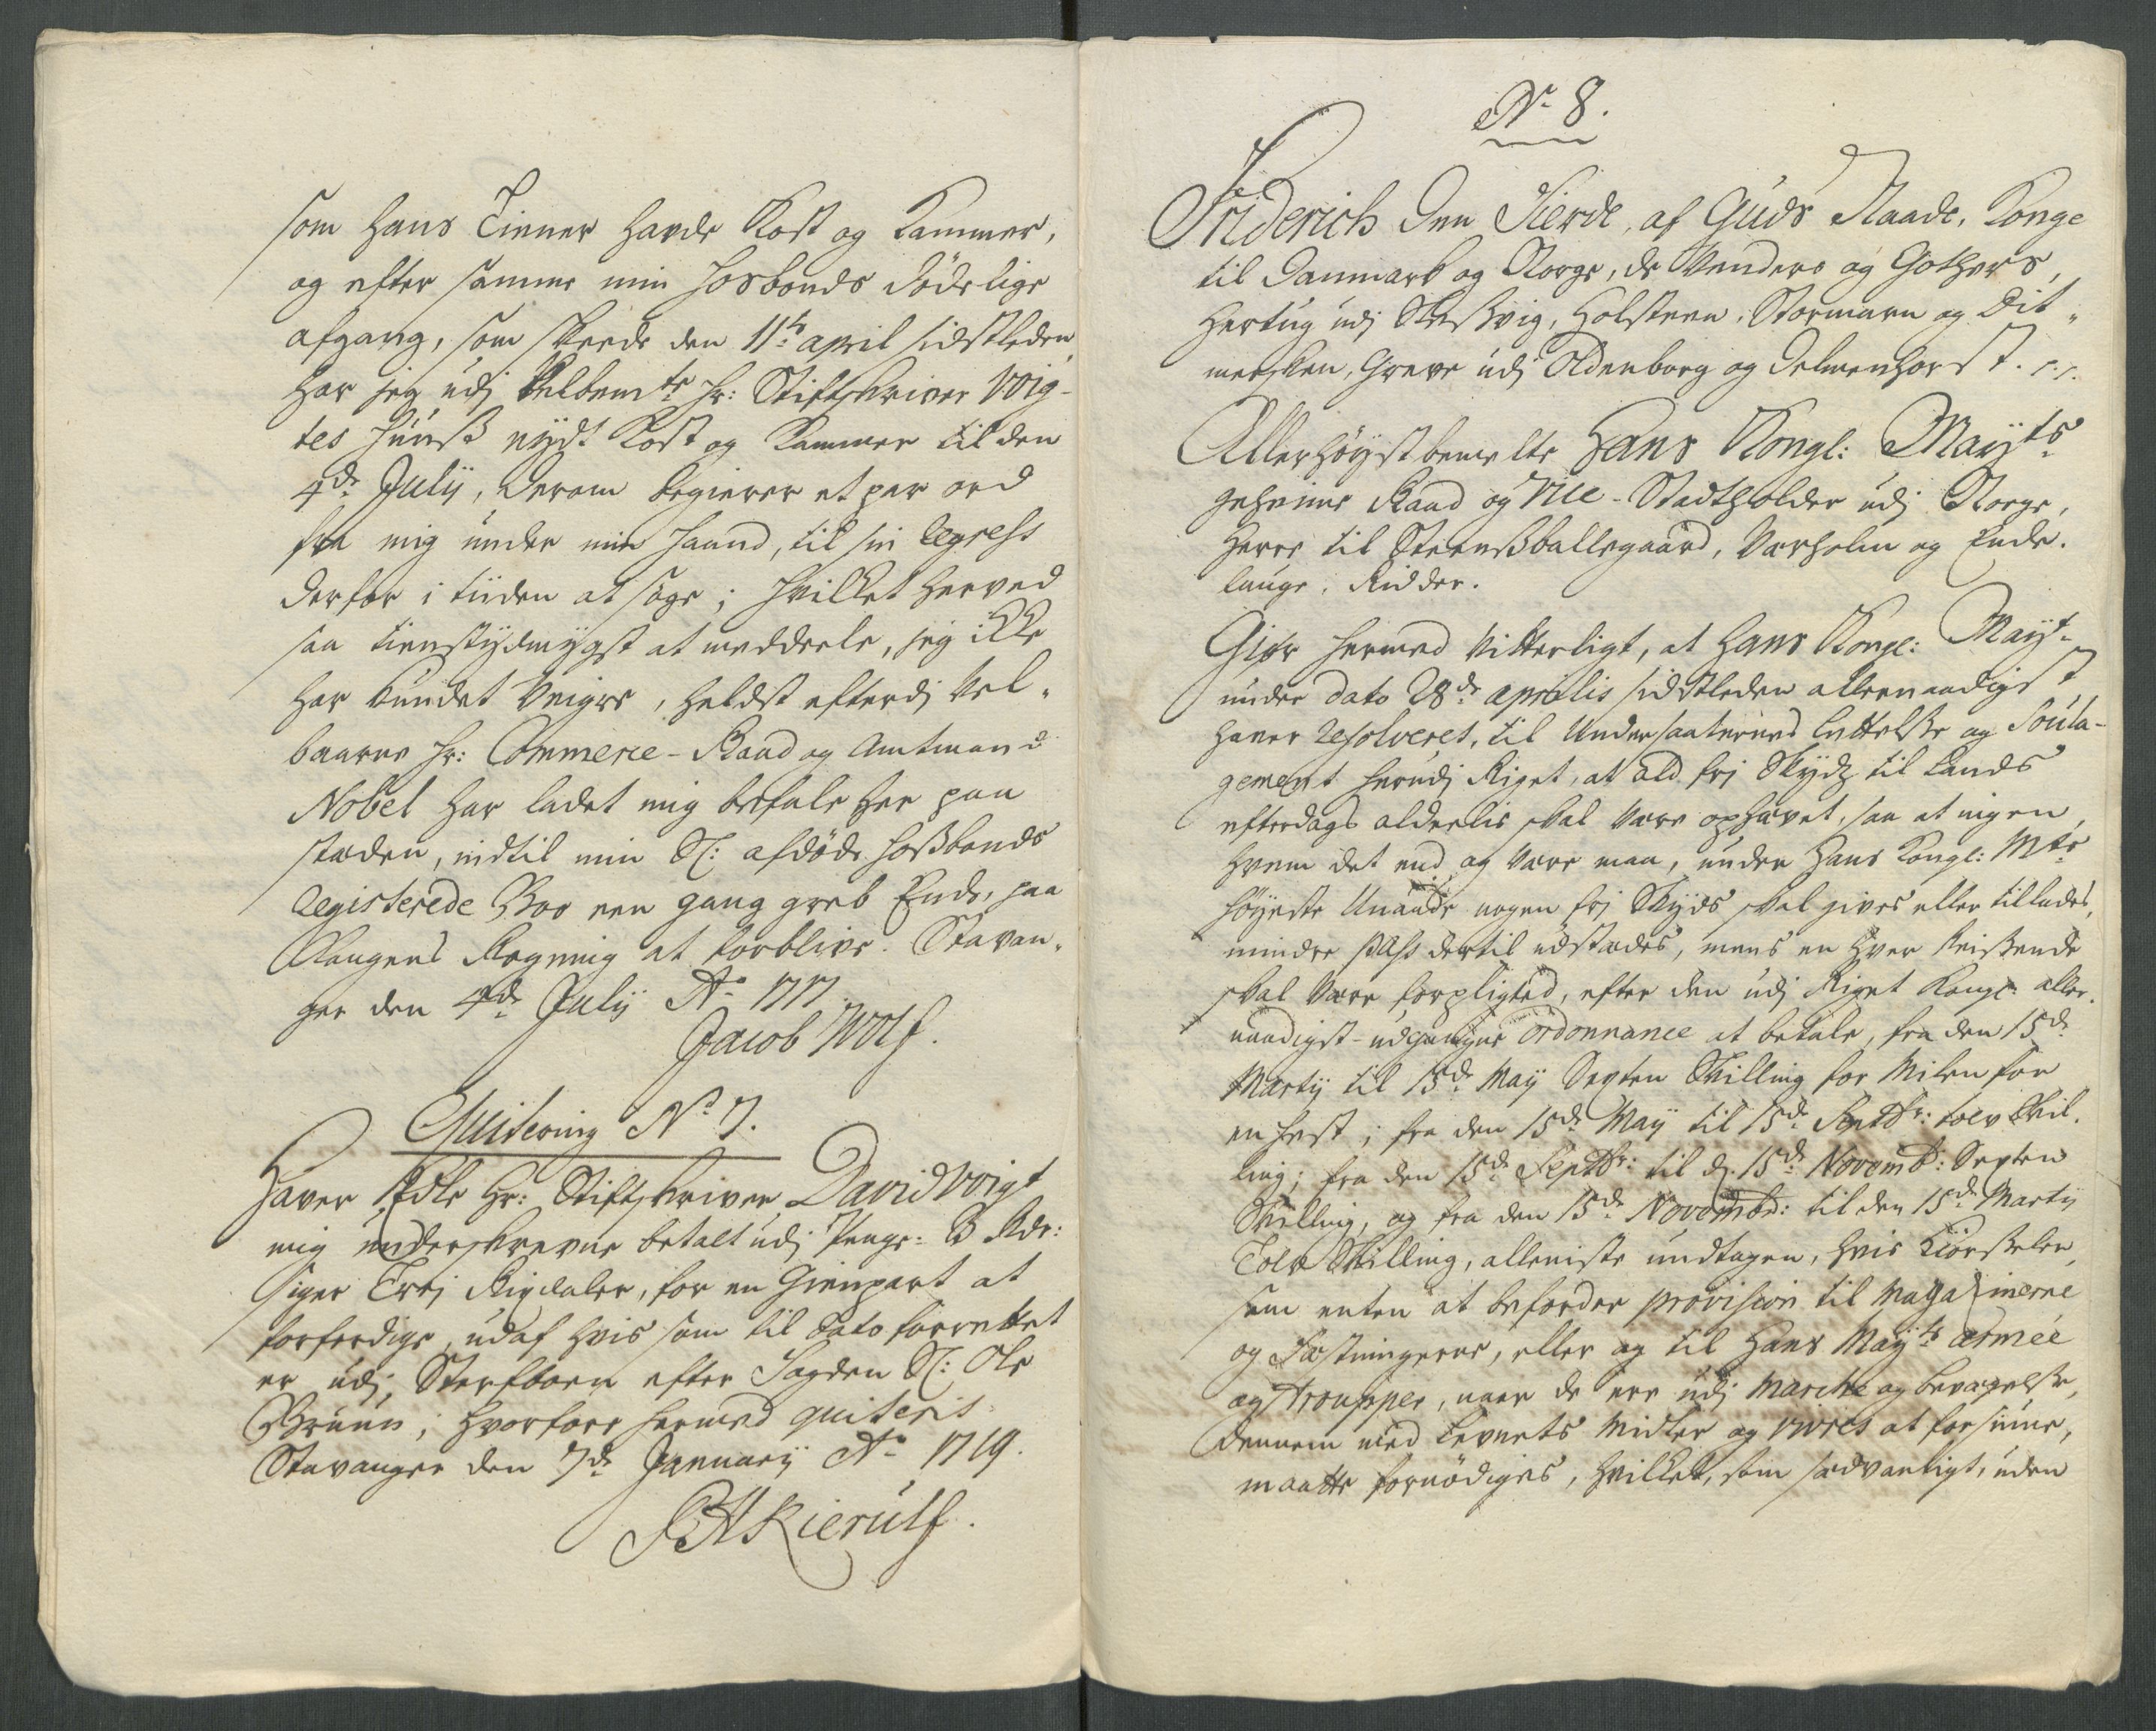 som hans Tienner hafde Kost og Kammer,
og efter samme min Hosbonds dödelige
afgang, som skeede den 11te april sidstleden
har jeg udj Velbemte hr: Stiftskriver Voig-
tes Huuß nydt Kost og Kammer til den
4de Julij, derom begierer et par ord
fra mig under min Haand, til sin Regress
derfor i tiiden at söge; hvilket herved
saa tienstydmygst at meddeele, jeg ikke
har kundet Veigre, heldst efterdj Vel-
baarne hr: Commerce-Raad og Amtmand
Nobel har ladet mig befale her paa
stæden, indtil min Sl: afdöde Hoßbonds
Registerede Boo een gang greb Ende, paa
Kongens Regning at forblive. Stavan-
ger den 4de Julij Ao 1717.
Jacob Wolf.
Quitering No 7.
Haver Edle Hr: Stiftskriver David Voigt
mig underskrevne betalt udj Penge: 3 Rdr:
siger Trej Rixdaler, for en Gienpart at
forferdige, udaf hvis som til Dato forrettet
er udj Sterfboen efter Sagden Sl: Ole
Bruun; hvorfore hermed quiteris.
Stavanger den 7de January Ao 1719.
S A Kierulf.
No 8.
Friderich den Fierde, af Guds Naade, Konge
til Danmark og Norge, de Venders og Gothers,
Hertug udj Sleßvig, Holsteen, Stormarn og Dit-
mersken, Greve udj Oldenborg og Delmenhorst. s: s.
Allerhöystbemelte Hans Kongl: Mayts
geheime Raad og Vice-Stadtholder udj Norge,
Herre til Steensballegaard, Varholm og Ende-
lauge, Ridder.
Giör hermed Vitterligt, at Hans Kongl: Mayt
under dato 28de aprilis sidstleden allernaadigst
haver resolveret, til Undersaaternes Lettelße og Soula-
gement herudj Riget, at ald frj Skydz til Lands
efterdags alderlis skal være ophævet, saa at ingen
hvem det end og være maa, under Hans Kongl: Mts
höyeste Unaade nogen frj Skyds skal gives eller tillades,
mindre Pass dertil udstædes, mens en hver Reißende
skal være forpligted, efter den udj Riget Kongl: aller-
naadigst-udgangne ordonnance at betale, fra den 15de
Martij til 15de May Sexten Skilling for Milen for
en hest; fra den 15de May til 15de Septbr: tolv Skil-
ling; fra den 15de Septbr: til d. 15de Novemb: Sexten
Skilling, og fra den 15de Novembr: til den 15de Martij
Tolv Skilling, alleniste undtagen, hvis Kiörßeler,
som enten at befordre provision til Magazinerne
og Fæstningerne, eller og til Hans Mayts armée
og troupper, naar de ere udj Marche og bevægelße,
dennem med Levnets Midler og vivres at forsiune,
maatte fornödiges, hvilket, som sædvanligt, uden